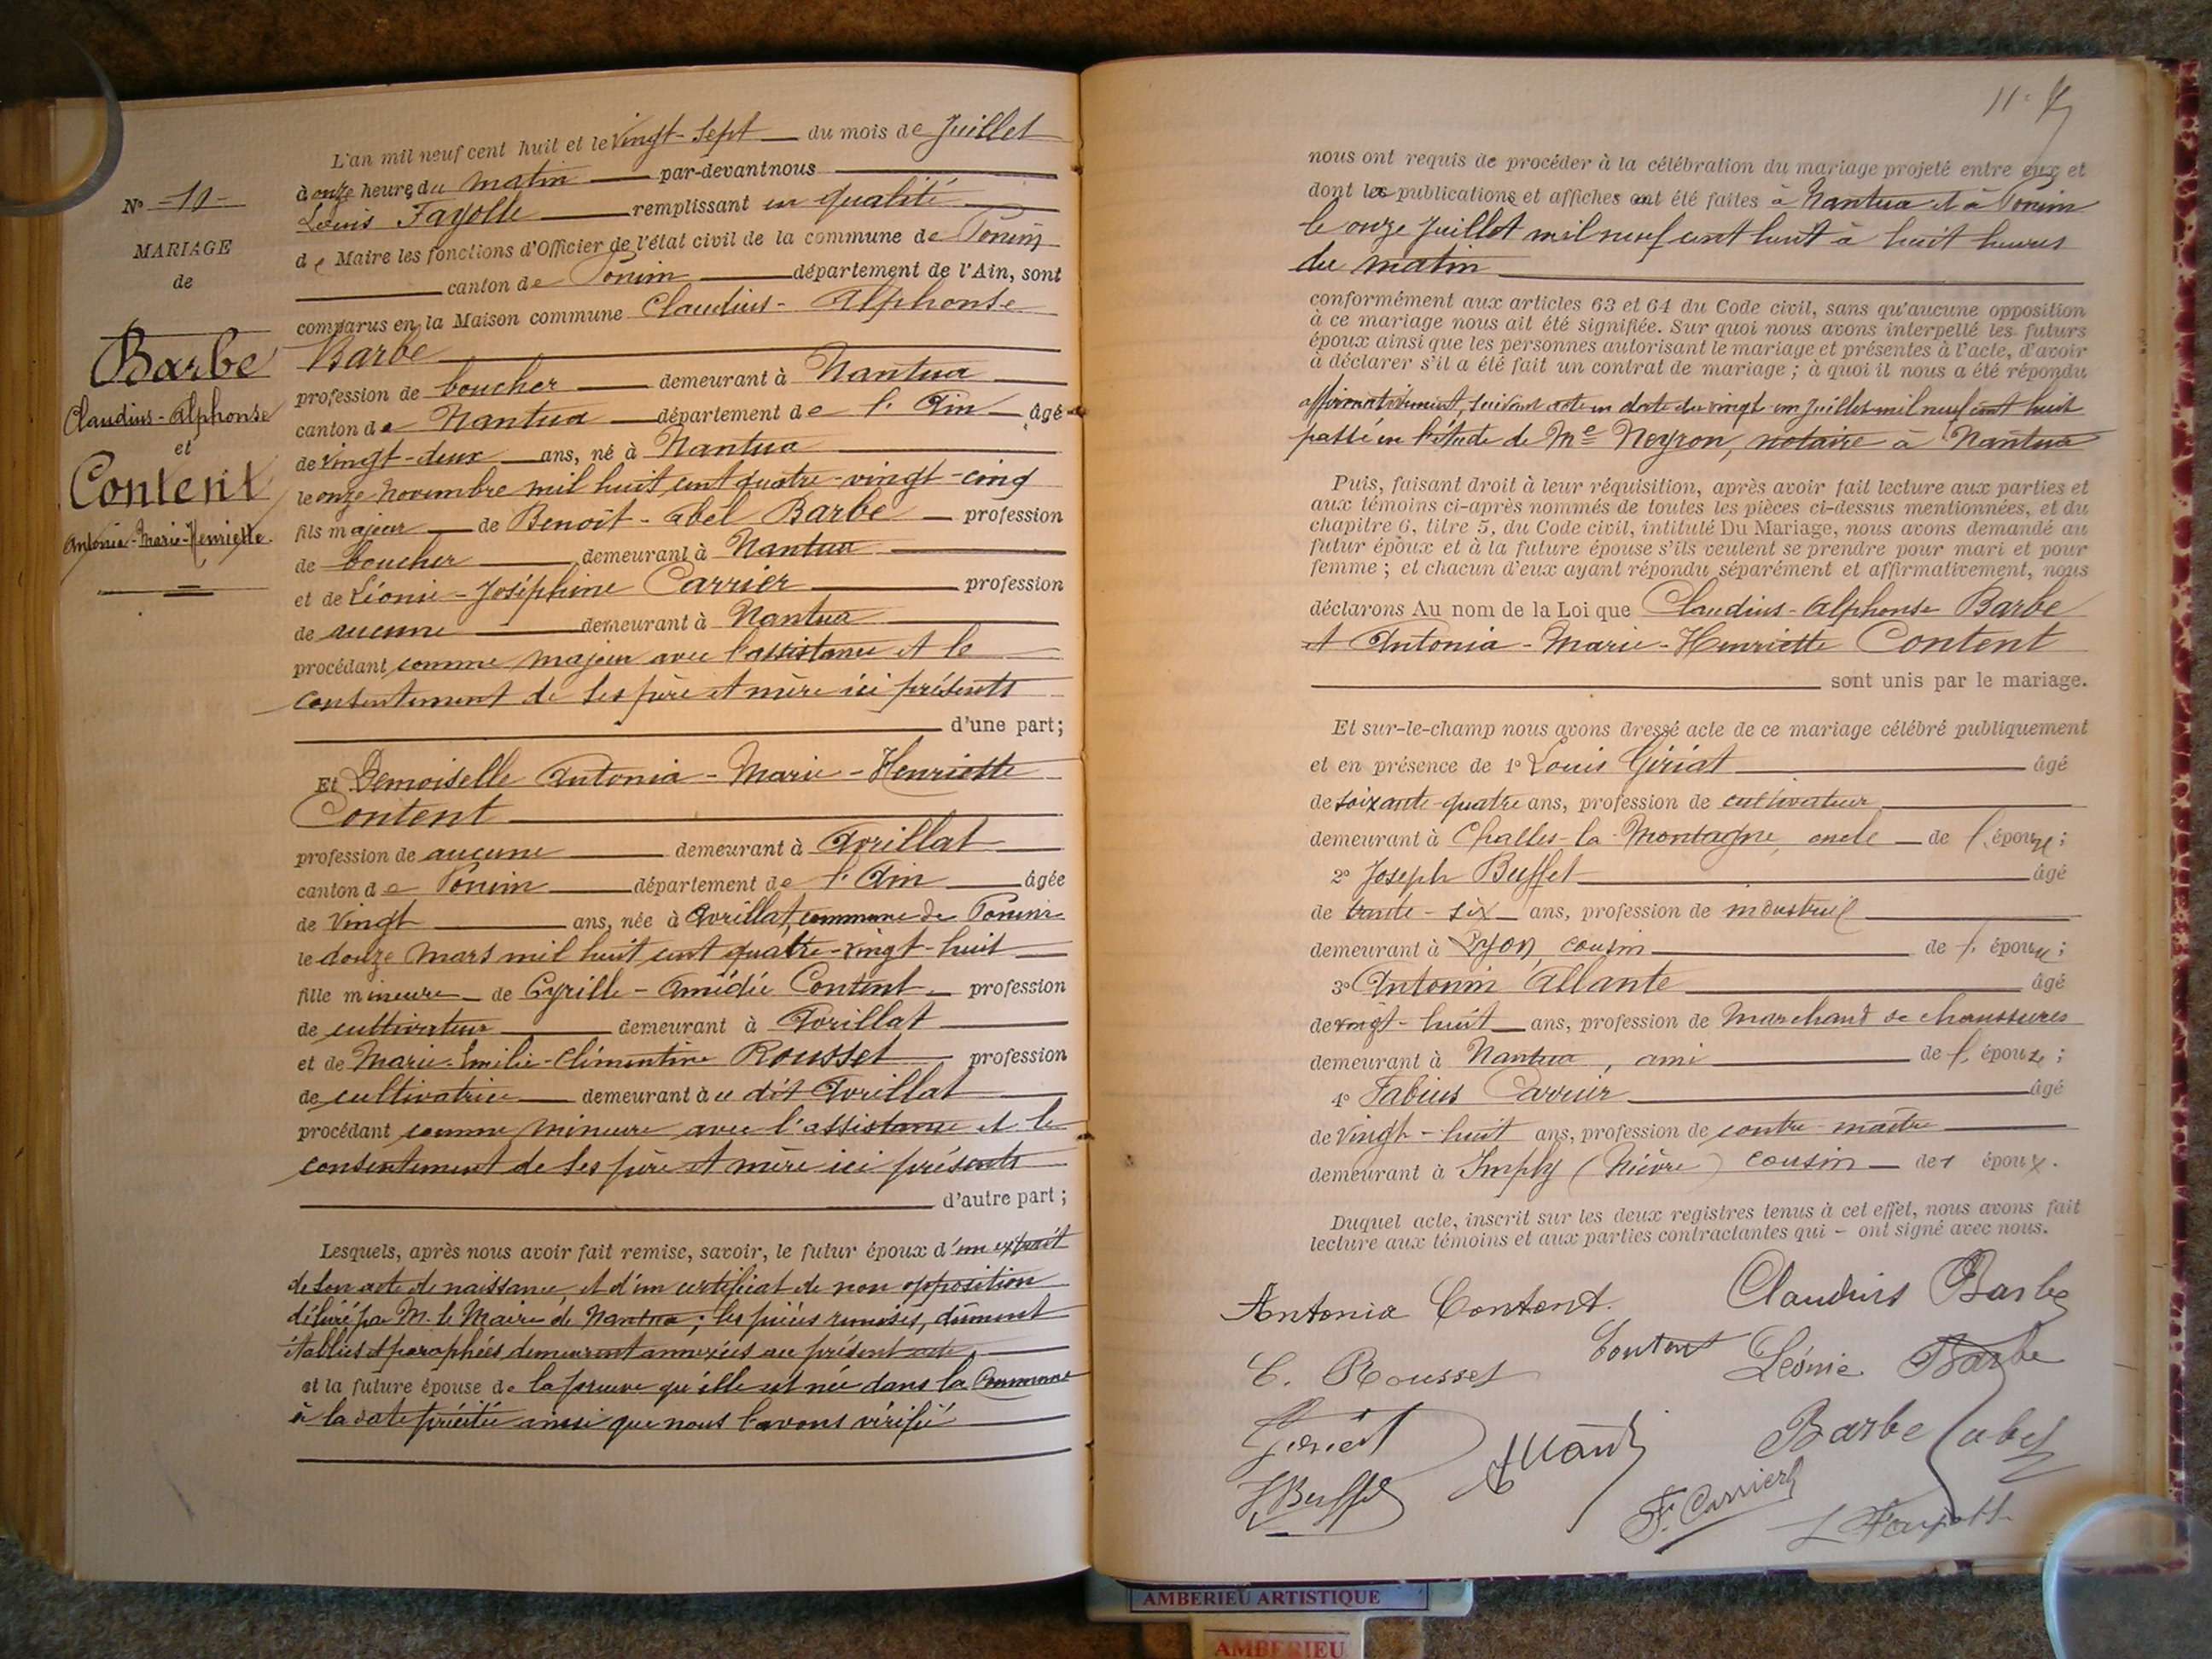 L'an mil neuf cent huit et le vingt-sept du mois de Juillet
à onze heures du matin par-devant nous
Louis Fayolle remplissant en qualité
de Maire les fonctions d'Officier de l'état civil de la commune de Poncin
canton de Poncin département de l'Ain, sont
comparus en la Maison commune Claudius-Alphonse
Barbe
profession de boucher demeurant à Nantua
canton de Nantua département de l'Ain âgé
de vingt-deux ans, né à Nantua
le onze novembre mil huit cent quatre-vingt-cinq
fils majeur de Benoît-Abel Barbe profession
de boucher demeurant à Nantua
et de Léonie-Joséphine Carrier profession
de aucune demeurant à Nantua
procédant comme majeur avec l'assistance et le
consentement de ses père et mère ici présents
d'une part;
Et Demoiselle Antonia-Marie-Henriette
Content
profession de aucune demeurant à Avrillat
canton de Poncin département de l'Ain âgée
de vingt ans, née à Avrillat, commune de Poncin
le douze mars mil huit cent quatre-vingt-huit
fille mineure de Cyrille-Amédée Content profession
de cultivateur demeurant à Avrillat
et de Marie-Emilie-Clémentine Rousset profession
de cultivatrice demeurant au dit Avrillat
procédant comme mineure avec l'assistance et le
consentement de ses père et mère ici présents
d'autre part;
Lesquels, après nous avoir fait remise, savoir, le futur époux d'un extrait
de son acte de naissance et d'un certificat de non opposition
délivré par M. le Maire de Nantua; les pièces remises, dûment
établies et paraphées demeurent annexées au présent acte,
et la future épouse de la preuve qu'elle est née dans la Commune
à la date précitée ainsi que nous l'avons vérifié
N° 11
MARIAGE
de
Barbe
Claudius-Alphonse
et
Content
Antonia-Marie-Henriette
nous ont requis de procéder à la célébration du mariage projeté entre eux et
dont les publications et affiches ont été faites à Nantua et à Poncin
le onze Juillet mil neuf cent huit à huit heures
du matin
conformément aux articles 63 et 64 du Code civil, sans qu'aucune opposition
à ce mariage nous ait été signifiée. Sur quoi nous avons interpellé les futurs
époux ainsi que les personnes autorisant le mariage et présentes à l'acte, d'avoir
à déclarer s'il a été fait un contrat de mariage; à quoi il nous a été répondu
affirmativement, suivant acte en date du vingt un Juillet mil neuf cent huit
passé en l'étude de Me Neyron, notaire à Nantua
Puis, faisant droit à leur réquisition, après avoir fait lecture aux parties et
aux témoins ci-après nommés de toutes les pièces ci-dessus mentionnées, et du
chapitre 6, titre 5, du Code civil, intitulé Du Mariage, nous avons demandé au
futur époux et à la future épouse s'ils veulent se prendre pour mari et pour
femme; et chacun d'eux ayant répondu séparément et affirmativement, nous
déclarons Au nom de la Loi que Claudius-Alphonse Barbe
et Antonia-Marie-Henriette Content
sont unis par le mariage.
Et sur-le-champ nous avons dressé acte de ce mariage célébré publiquement
et en présence de 1° Louis Gériat âgé
de soixante-quatre ans, profession de cultivateur
demeurant à Challes-la-Montagne, oncle de l'épouse;
2° Joseph Buffet âgé
de trente-six ans, profession de industriel
demeurant à Lyon, cousin de l'épouse;
3° Antonin Allante âgé
de vingt-huit ans, profession de marchand de chaussures
demeurant à Nantua, ami de l'épouse;
4° Fabius Carrier âgé
de vingt-huit ans, profession de contre-maître
demeurant à Imphy (Nièvre) cousin de l'époux.
Duquel acte, inscrit sur les deux registres tenus à cet effet, nous avons fait
lecture aux témoins et aux parties contractantes qui - ont signé avec nous.
Antonia Content. Claudius Barbe
C. Rousset Content Léonie Barbe
Gériat Barbe Abel
J Buffet F. Carrier L Fayolle
AMBERIEU ARTISTIQUE
AMBERIEU